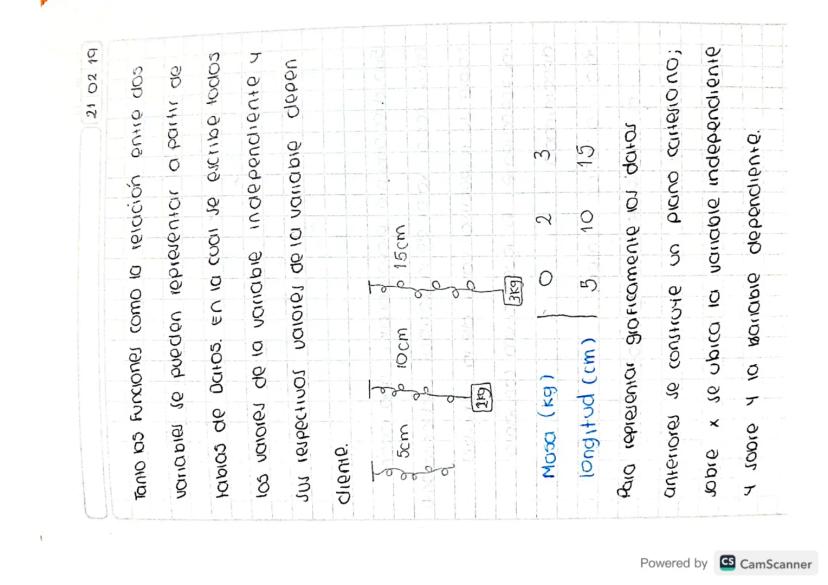 21 02 19
Tanto las Funciones como la relación entre dos
variables se pueden representar a partir de
tablas de Datos. En la cual se escribe todos
los valores de la variable independiente y
sus respectivos valores de la variable depen
diente.
5cm 10cm 15cm
2Kg 3Kg
Masa (kg) 0 2 3
longitud (cm) 5 10 15
Para representar graficamente los datos
anteriores se construye un plano cartesiano;
sobre x se ubica la variable independiente
y sobre y la variable dependiente.
Powered by CS CamScanner